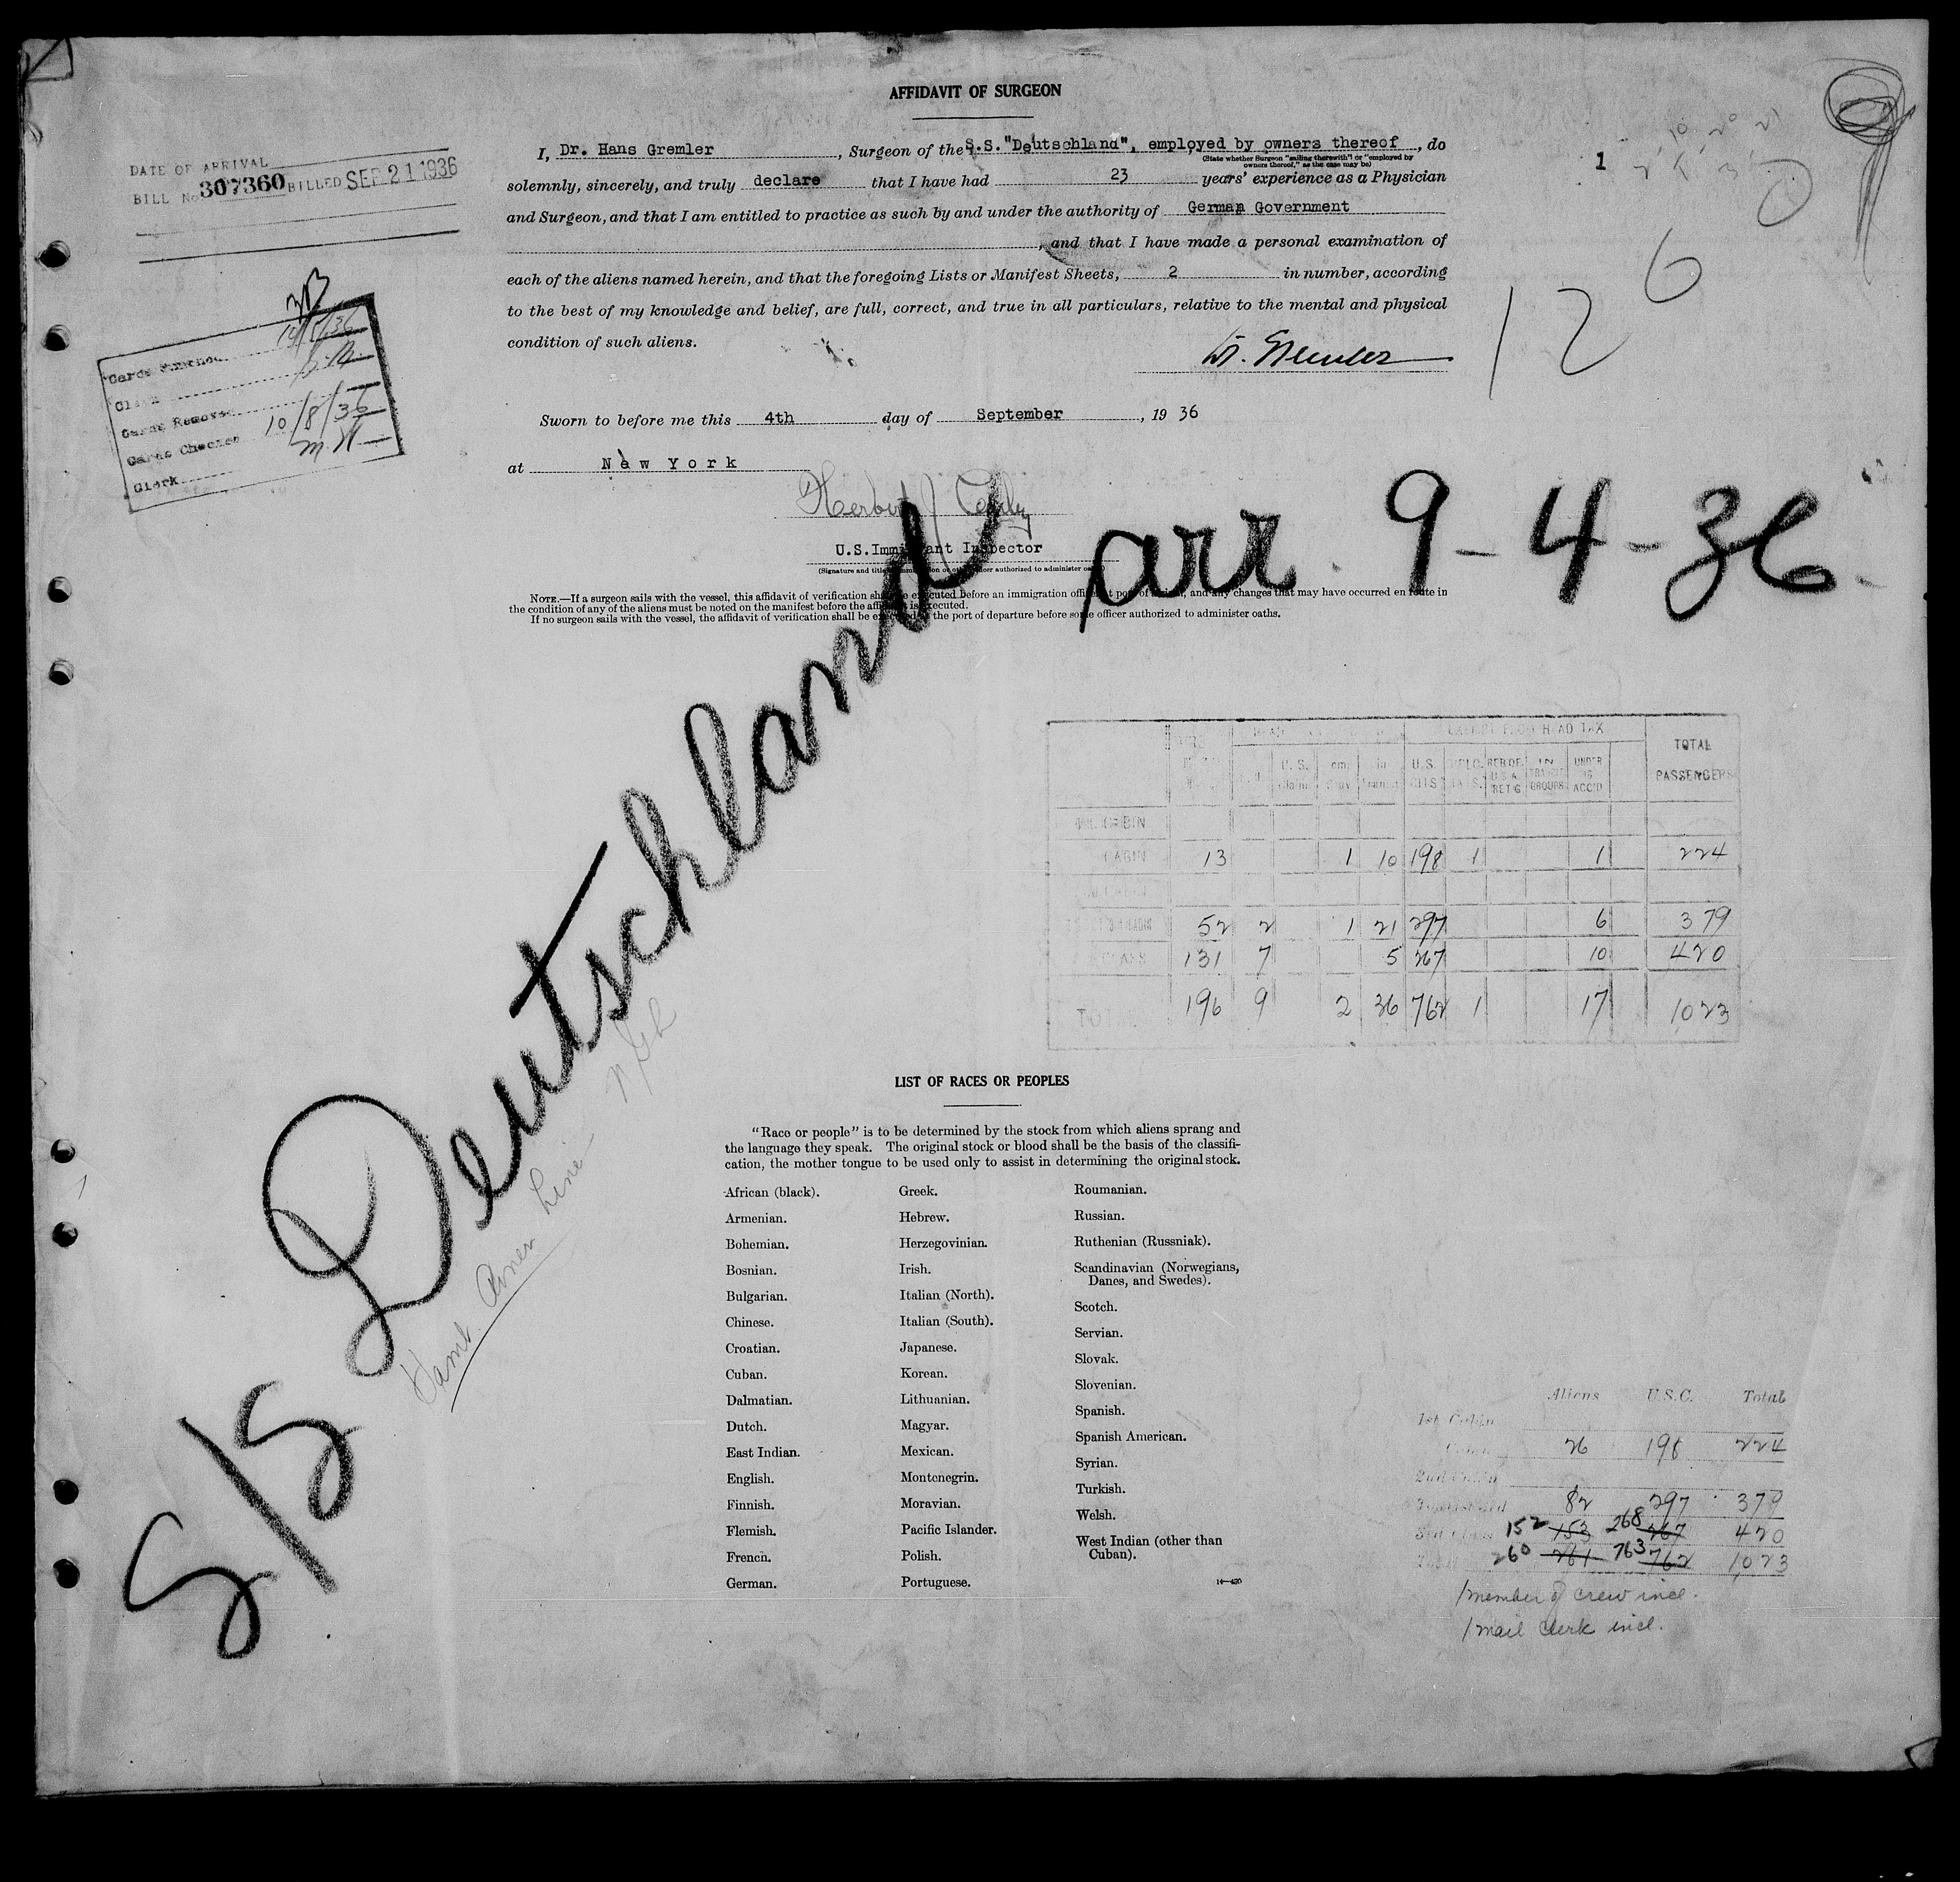 AFFIDAVIT OF SURGEON
I, Dr. Hans Gremler, Surgeon of the S.S. "Deutschland", employed by owners thereof, do
(State whether Surgeon "sailing therewith" or "employed by
owners thereof," as the case may be)
solemnly, sincerely, and truly declare that I have had 23 years' experience as a Physician
and Surgeon, and that I am entitled to practice as such by and under the authority of German Government
, and that I have made a personal examination of
each of the aliens named herein, and that the foregoing Lists or Manifest Sheets, 2 in number, according
to the best of my knowledge and belief, are full, correct, and true in all particulars, relative to the mental and physical
condition of such aliens.
Sworn to before me this 4th day of September, 1936
at New York
U.S. Immigrant Inspector
NOTE.—If a surgeon sails with the vessel, this affidavit of verification shall be executed before an immigration officer at port of arrival, and any changes that may have occurred en route in
the condition of any of the aliens must be noted on the manifest before the affidavit is executed.
If no surgeon sails with the vessel, the affidavit of verification shall be executed at the port of departure before some officer authorized to administer oaths.
DATE OF ARRIVAL
BILL No 307360 BILLED SEP 21 1936
Clerk
Cards Removed
Cards Checked 10/8/36
Clerk M.H
1
126
S/S Deutschland arr. 9-4-36.
Hamb. Amer Line
EXEMPT FROM HEAD TAX
TOTAL
PASSENGERS
CABIN 13 1 10 198 1 1 224
52 2 1 21 297 6 379
CLASS 131 7 5 267 10 420
TOTAL 196 9 2 36 762 1 17 1023
LIST OF RACES OR PEOPLES
"Race or people" is to be determined by the stock from which aliens sprang and
the language they speak. The original stock or blood shall be the basis of the classifi-
cation, the mother tongue to be used only to assist in determining the original stock.
African (black).
Armenian.
Bohemian.
Bosnian.
Bulgarian.
Chinese.
Croatian.
Cuban.
Dalmatian.
Dutch.
East Indian.
English.
Finnish.
Flemish.
French.
German.
Greek.
Hebrew.
Herzegovinian.
Irish.
Italian (North).
Italian (South).
Japanese.
Korean.
Lithuanian.
Magyar.
Mexican.
Montenegrin.
Moravian.
Pacific Islander.
Polish.
Portuguese.
Roumanian.
Russian.
Ruthenian (Russniak).
Scandinavian (Norwegians,
Danes, and Swedes).
Scotch.
Servian.
Slovak.
Slovenian.
Spanish.
Spanish American.
Syrian.
Turkish.
Welsh.
West Indian (other than
Cuban).
Aliens U.S.C. Total
1st Cabin
Cabin 26 198 224
2nd Cabin
82 297 379
3rd Class 152 153 268 267 420
260 261 763 762 1023
1 member of crew incl.
1 mail clerk incl.